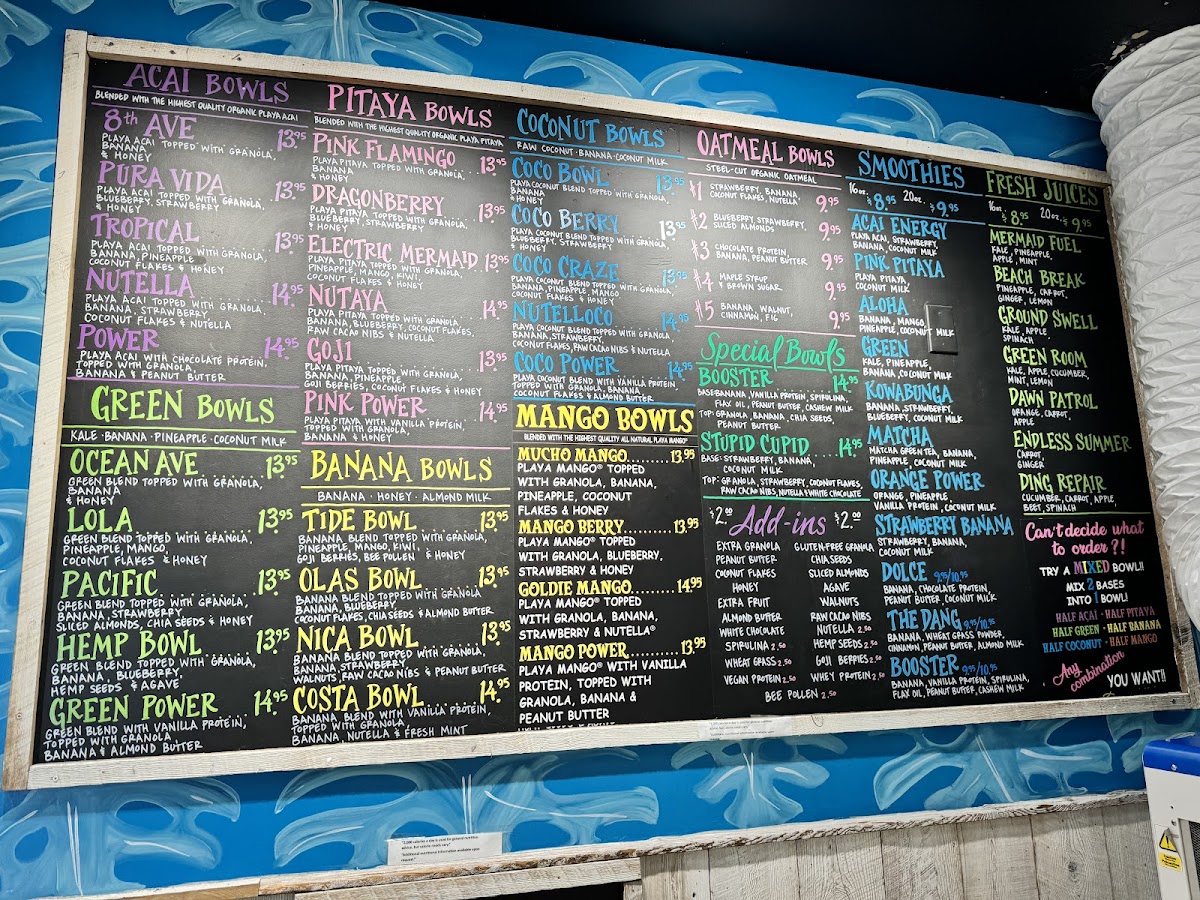 ACAI BOWLS
BLENDED WITH THE HIGHEST QUALITY ORGANIC PLAYA ACAI
8th AVE 13.95
PLAYA ACAI TOPPED WITH GRANOLA,
BANANA
& HONEY
PURA VIDA 13.95
PLAYA ACAI TOPPED WITH GRANOLA,
BLUEBERRY, STRAWBERRY
& HONEY
TROPICAL 13.95
PLAYA ACAI TOPPED WITH GRANOLA,
BANANA, PINEAPPLE
COCONUT FLAKES & HONEY
NUTELLA 14.95
PLAYA ACAI TOPPED WITH GRANOLA,
BANANA, STRAWBERRY,
COCONUT FLAKES & NUTELLA
POWER 14.95
PLAYA ACAI WITH CHOCOLATE PROTEIN,
TOPPED WITH GRANOLA,
BANANA & PEANUT BUTTER
GREEN BOWLS
KALE · BANANA · PINEAPPLE · COCONUT MILK
OCEAN AVE 13.95
GREEN BLEND TOPPED WITH GRANOLA,
BANANA
& HONEY
LOLA 13.95
GREEN BLEND TOPPED WITH GRANOLA,
PINEAPPLE, MANGO,
COCONUT FLAKES & HONEY
PACIFIC 13.95
GREEN BLEND TOPPED WITH GRANOLA,
BANANA, STRAWBERRY
SLICED ALMONDS, CHIA SEEDS & HONEY
HEMP BOWL 13.95
GREEN BLEND TOPPED WITH GRANOLA,
BANANA, BLUEBERRY,
HEMP SEEDS & AGAVE
GREEN POWER 14.95
GREEN BLEND WITH VANILLA PROTEIN,
TOPPED WITH GRANOLA
BANANA & ALMOND BUTTER
PITAYA BOWLS
BLENDED WITH THE HIGHEST QUALITY ORGANIC PLAYA PITAYA
PINK FLAMINGO 13.95
PLAYA PITAYA TOPPED WITH GRANOLA,
BANANA
& HONEY
DRAGONBERRY 13.95
PLAYA PITAYA TOPPED WITH GRANOLA,
BLUEBERRY, STRAWBERRY
& HONEY
ELECTRIC MERMAID 13.95
PLAYA PITAYA TOPPED WITH GRANOLA,
PINEAPPLE, MANGO, KIWI,
COCONUT FLAKES & HONEY
NUTAYA 14.95
PLAYA PITAYA TOPPED WITH GRANOLA,
BANANA, BLUEBERRY, COCONUT FLAKES,
RAW CACAO NIBS & NUTELLA
GOJI 13.95
PLAYA PITAYA TOPPED WITH GRANOLA,
BANANA, PINEAPPLE,
GOJI BERRIES, COCONUT FLAKES & HONEY
PINK POWER 14.95
PLAYA PITAYA WITH VANILLA PROTEIN,
TOPPED WITH GRANOLA,
BANANA & HONEY
BANANA BOWLS
BANANA · HONEY · ALMOND MILK
TIDE BOWL 13.95
BANANA BLEND TOPPED WITH GRANOLA,
PINEAPPLE, MANGO, KIWI,
GOJI BERRIES, BEE POLLEN & HONEY
OLAS BOWL 13.95
BANANA BLEND TOPPED WITH GRANOLA,
BANANA, BLUEBERRY,
COCONUT FLAKES, CHIA SEEDS & ALMOND BUTTER
NICA BOWL 13.95
BANANA BLEND TOPPED WITH GRANOLA,
BANANA, STRAWBERRY
WALNUTS, RAW CACAO NIBS & PEANUT BUTTER
COSTA BOWL 14.95
BANANA BLEND WITH VANILLA PROTEIN,
TOPPED WITH GRANOLA,
BANANA, NUTELLA & FRESH MINT
COCONUT BOWLS
RAW COCONUT · BANANA · COCONUT MILK
COCO BOWL 13.95
PLAYA COCONUT BLEND TOPPED WITH GRANOLA,
BANANA
& HONEY
COCO BERRY 13.95
PLAYA COCONUT BLEND TOPPED WITH GRANOLA,
BLUEBERRY, STRAWBERRY
& HONEY
COCO CRAZE 13.95
PLAYA COCONUT BLEND TOPPED WITH GRANOLA,
BANANA, PINEAPPLE, MANGO
COCONUT FLAKES & HONEY
NUTELLOCO 14.95
PLAYA COCONUT BLEND TOPPED WITH GRANOLA,
BANANA, STRAWBERRY,
COCONUT FLAKES, RAW CACAO NIBS & NUTELLA
COCO POWER 14.95
PLAYA COCONUT BLEND WITH VANILLA PROTEIN,
TOPPED WITH GRANOLA, BANANA,
COCONUT FLAKES & ALMOND BUTTER
MANGO BOWLS
BLENDED WITH THE HIGHEST QUALITY ALL NATURAL PLAYA MANGO®
MUCHO MANGO..........13.95
PLAYA MANGO® TOPPED
WITH GRANOLA, BANANA,
PINEAPPLE, COCONUT
FLAKES & HONEY
MANGO BERRY..........13.95
PLAYA MANGO® TOPPED
WITH GRANOLA, BLUEBERRY,
STRAWBERRY & HONEY
GOLDIE MANGO.........14.95
PLAYA MANGO® TOPPED
WITH GRANOLA, BANANA,
STRAWBERRY & NUTELLA®
MANGO POWER..........13.95
PLAYA MANGO® WITH VANILLA
PROTEIN, TOPPED WITH
GRANOLA, BANANA &
PEANUT BUTTER
OATMEAL BOWLS
STEEL-CUT ORGANIC OATMEAL
#1 STRAWBERRY, BANANA
COCONUT FLAKES, NUTELLA 9.95
#2 BLUEBERRY, STRAWBERRY,
SLICED ALMONDS 9.95
#3 CHOCOLATE PROTEIN
BANANA, PEANUT BUTTER 9.95
#4 MAPLE SYRUP
& BROWN SUGAR 9.95
#5 BANANA, WALNUT,
CINNAMON, FIG 9.95
Special Bowls
BOOSTER 14.95
BASE: BANANA, VANILLA PROTEIN, SPIRULINA,
FLAX OIL, PEANUT BUTTER, CASHEW MILK
TOP: GRANOLA, BANANA, CHIA SEEDS,
PEANUT BUTTER
STUPID CUPID ....14.95
BASE: STRAWBERRY, BANANA,
COCONUT MILK
TOP: GRANOLA, STRAWBERRY, COCONUT FLAKES,
RAW CACAO NIBS, NUTELLA & WHITE CHOCOLATE
$2.00 Add-ins $2.00
EXTRA GRANOLA
PEANUT BUTTER
COCONUT FLAKES
HONEY
EXTRA FRUIT
ALMOND BUTTER
WHITE CHOCOLATE
SPIRULINA 2.50
WHEAT GRASS 2.50
VEGAN PROTEIN 2.50
GLUTEN-FREE GRANOLA
CHIA SEEDS
SLICED ALMONDS
AGAVE
WALNUTS
RAW CACAO NIBS
NUTELLA 2.50
HEMP SEEDS 2.50
GOJI BERRIES 2.50
WHEY PROTEIN 2.50
BEE POLLEN 2.50
SMOOTHIES
16oz. $8.95 20oz. $9.95
ACAI ENERGY
PLAYA ACAI, STRAWBERRY,
BANANA, COCONUT MILK
PINK PITAYA
PLAYA PITAYA,
COCONUT MILK
ALOHA
BANANA, MANGO,
PINEAPPLE, COCONUT MILK
GREEN
KALE, PINEAPPLE,
BANANA, COCONUT MILK
KOWABUNGA
BANANA, STRAWBERRY,
BLUEBERRY, COCONUT MILK
MATCHA
MATCHA GREEN TEA, BANANA,
PINEAPPLE, COCONUT MILK
ORANGE POWER
ORANGE, PINEAPPLE,
VANILLA PROTEIN, COCONUT MILK
STRAWBERRY BANANA
STRAWBERRY, BANANA,
COCONUT MILK
DOLCE 9.95/10.95
BANANA, CHOCOLATE PROTEIN,
PEANUT BUTTER, COCONUT MILK
THE DANG 9.95/10.95
BANANA, WHEAT GRASS POWDER,
CINNAMON, PEANUT BUTTER, ALMOND MILK
BOOSTER 9.95/10.95
BANANA, VANILLA PROTEIN, SPIRULINA,
FLAX OIL, PEANUT BUTTER, CASHEW MILK
FRESH JUICES
16oz. $8.95 20oz. $9.95
MERMAID FUEL
KALE, PINEAPPLE,
APPLE, MINT
BEACH BREAK
PINEAPPLE, CARROT,
GINGER, LEMON
GROUND SWELL
KALE, APPLE
SPINACH
GREEN ROOM
KALE, APPLE, CUCUMBER,
MINT, LEMON
DAWN PATROL
ORANGE, CARROT,
APPLE
ENDLESS SUMMER
CARROT
GINGER
DING REPAIR
CUCUMBER, CARROT, APPLE,
BEET, SPINACH
Can't decide what
to order?!
NO STRESS,
TRY A MIXED BOWL!!
MIX 2 BASES
INTO 1 BOWL!
HALF ACAI · HALF PITAYA
HALF GREEN · HALF BANANA
HALF COCONUT · HALF MANGO
Any
combination
YOU WANT!!